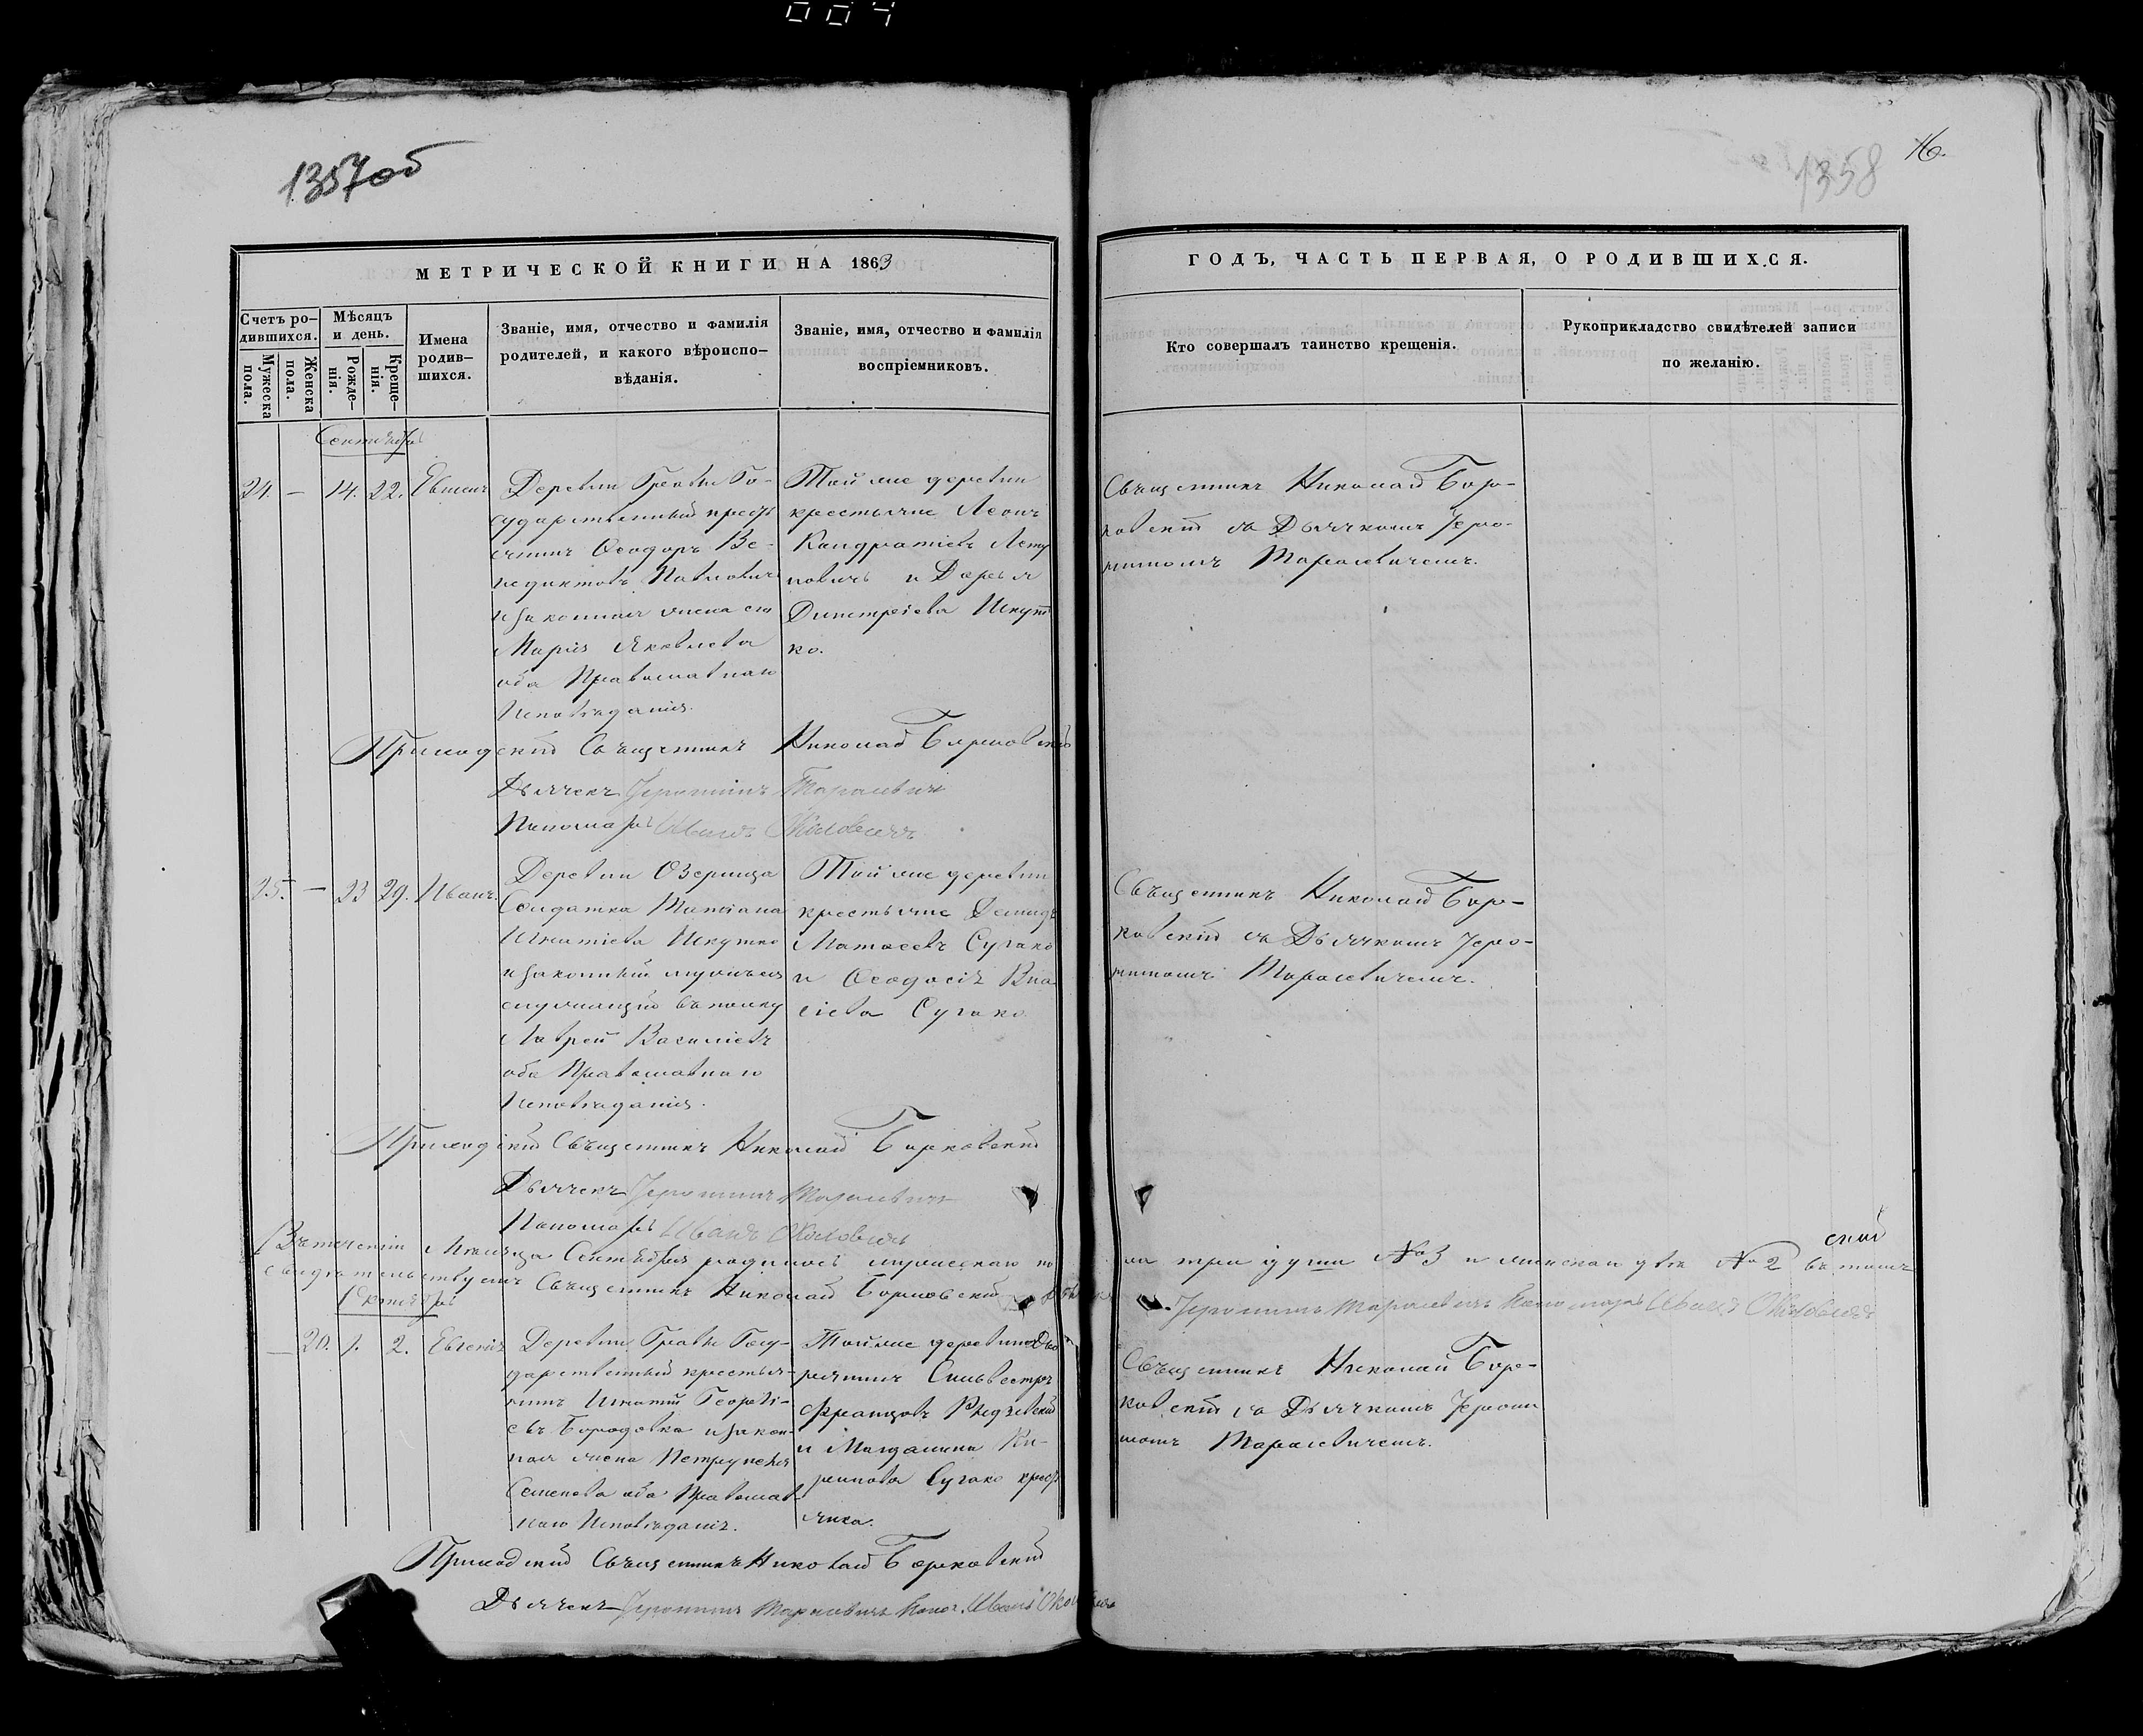 004
1357об
1358
16.
МЕТРИЧЕСКОЙ КНИГИ НА 1863
ГОДЪ, ЧАСТЬ ПЕРВАЯ, О РОДИВШИХСЯ.
Счетъ ро-
дившихся.
Мужеска
пола.
Женска
пола.
Мѣсяцъ
и день.
Рожде-
нія.
Креще-
нія.
Имена
родив-
шихся.
Званіе, имя, отчество и фамилія
родителей, и какого вѣроиспо-
вѣданія.
Званіе, имя, отчество и фамилія
воспріемниковъ.
Кто совершалъ таинство крещенія.
Рукоприкладство свидѣтелей записи
по желанію.
Сентябрь
24. — 14. 22.
Деревни Го-
сударственный кресть
янинъ Ѳеодоръ Ве-
недиктовъ Павловичъ
и законная жена его
Марія Яковлева
оба Православнаго
Исповѣданія.
Той же деревни
крестьяне Леонъ
Кондратіевъ Лету
новичь и Дарья
Димитріева Шкут
ко.
Священникъ Николай Бор-
ковскій съ Дьячкомъ Іеро-
нимомъ Тарасевичемъ.
Приходскій Священникъ Николай Борковскій
Дьячекъ Іеронимъ Тарасевичъ
Пономарь Иванъ Околовичъ
25. — 23 29. Иванъ.
Деревни Озерица
Солдатка Татіана
Игнатіева Шкутко
и законный мужъ ея
служащій въ полку
Лаврен Василіевъ
оба Православнаго
Исповѣданія.
Той же деревни
крестьяне Демидъ
Матѳеевъ Сугако
и Ѳеодосія Вла
сіева Сугако
Священникъ Николай Бор-
ковскій съ Дьячкомъ Іеро-
нимомъ Тарасевичемъ.
Приходскій Священникъ Николай Борковскій
Дьячекъ Іеронимъ Тарасевичъ
Пономарь Иванъ Околовичъ
Въ теченіи Мѣсяца Сентября родилось мужескаго по
ла три души №3 и женскаго двѣ №2 въ томъ
свидѣтельствуемъ Священникъ Николай Борковскій
Іеронимъ Тарасевичъ Пономарь Иванъ Околовичъ
Октябрь
— 20. 1. 2. Евгенія
Деревни Госу-
дарственный крестья-
нинъ Игнатій Георгі-
евъ Бородовка и закон-
ная жена Петрунеля
Семенова оба Православ-
наго Исповѣданія.
Той же деревни Дво
рянинъ Сильвестръ
Францовъ
и Магдалина Ки-
рилова Сугако крест
янка.
Священникъ Николай Бор-
ковскій съ Дьячкомъ Іерони
момъ Тарасевичемъ.
Приходскій Священникъ Николай Борковскій
Дьячекъ Іеронимъ Тарасевичъ Поном. Иванъ Околовичъ